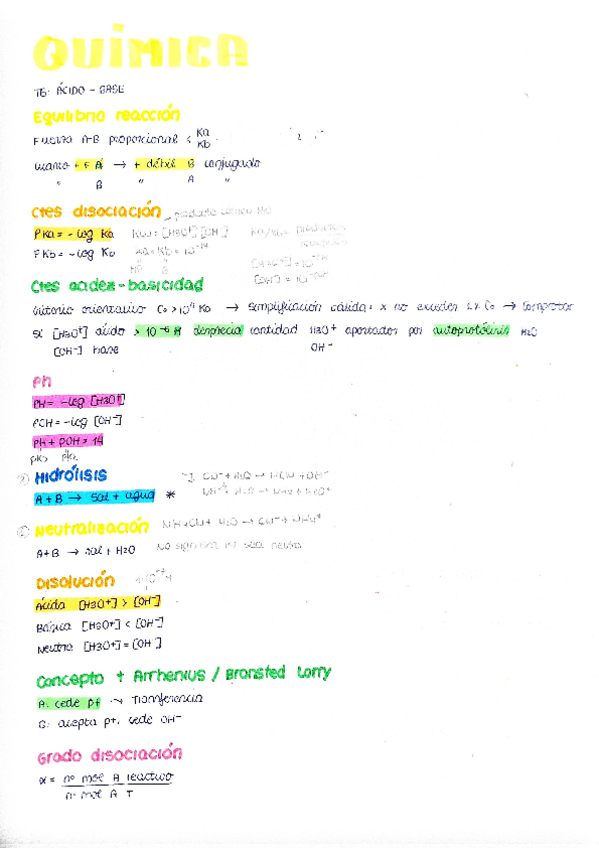 QUÍMICA
T6: ÁCIDO - BASE
Equilibrio reacción
Fuerza A-B proporcional < Ka
Kb
cuanto + F A → + débil B conjugado
" B " A "
Ctes disociación → producto iónico H2O
PKa = - log Ka Kw = [H3O+] [OH-] productos
PKb = - log Kb Ka · Kb = 10^-14
Ctes acidez - basicidad
Criterio orientativo Co > 10^4 Ka → Simplificación válida: x no exceden 1% Co → Comprobar
Si [H3O+] ácido > 10^-6 M desprecia cantidad H3O+ aportados por autoprotólisis H2O
[OH-] base OH-
PH
PH = - log [H3O+]
POH = - log [OH-]
PH + POH = 14
Hidrólisis
A + B → sal + agua *
Neutralización NH4CN + H2O → CN- + NH4+
A + B → sal + H2O No significa pH sea neutro
Disolución
Ácida [H3O+] > [OH-]
Básica [H3O+] < [OH-]
Neutra [H3O+] = [OH-]
Concepto + Arrhenius / Bronsted Lorry
A: cede p+ → Transferencia
B: acepta p+, cede OH-
Grado disociación
α = nº mol A reactivo
nº mol A T